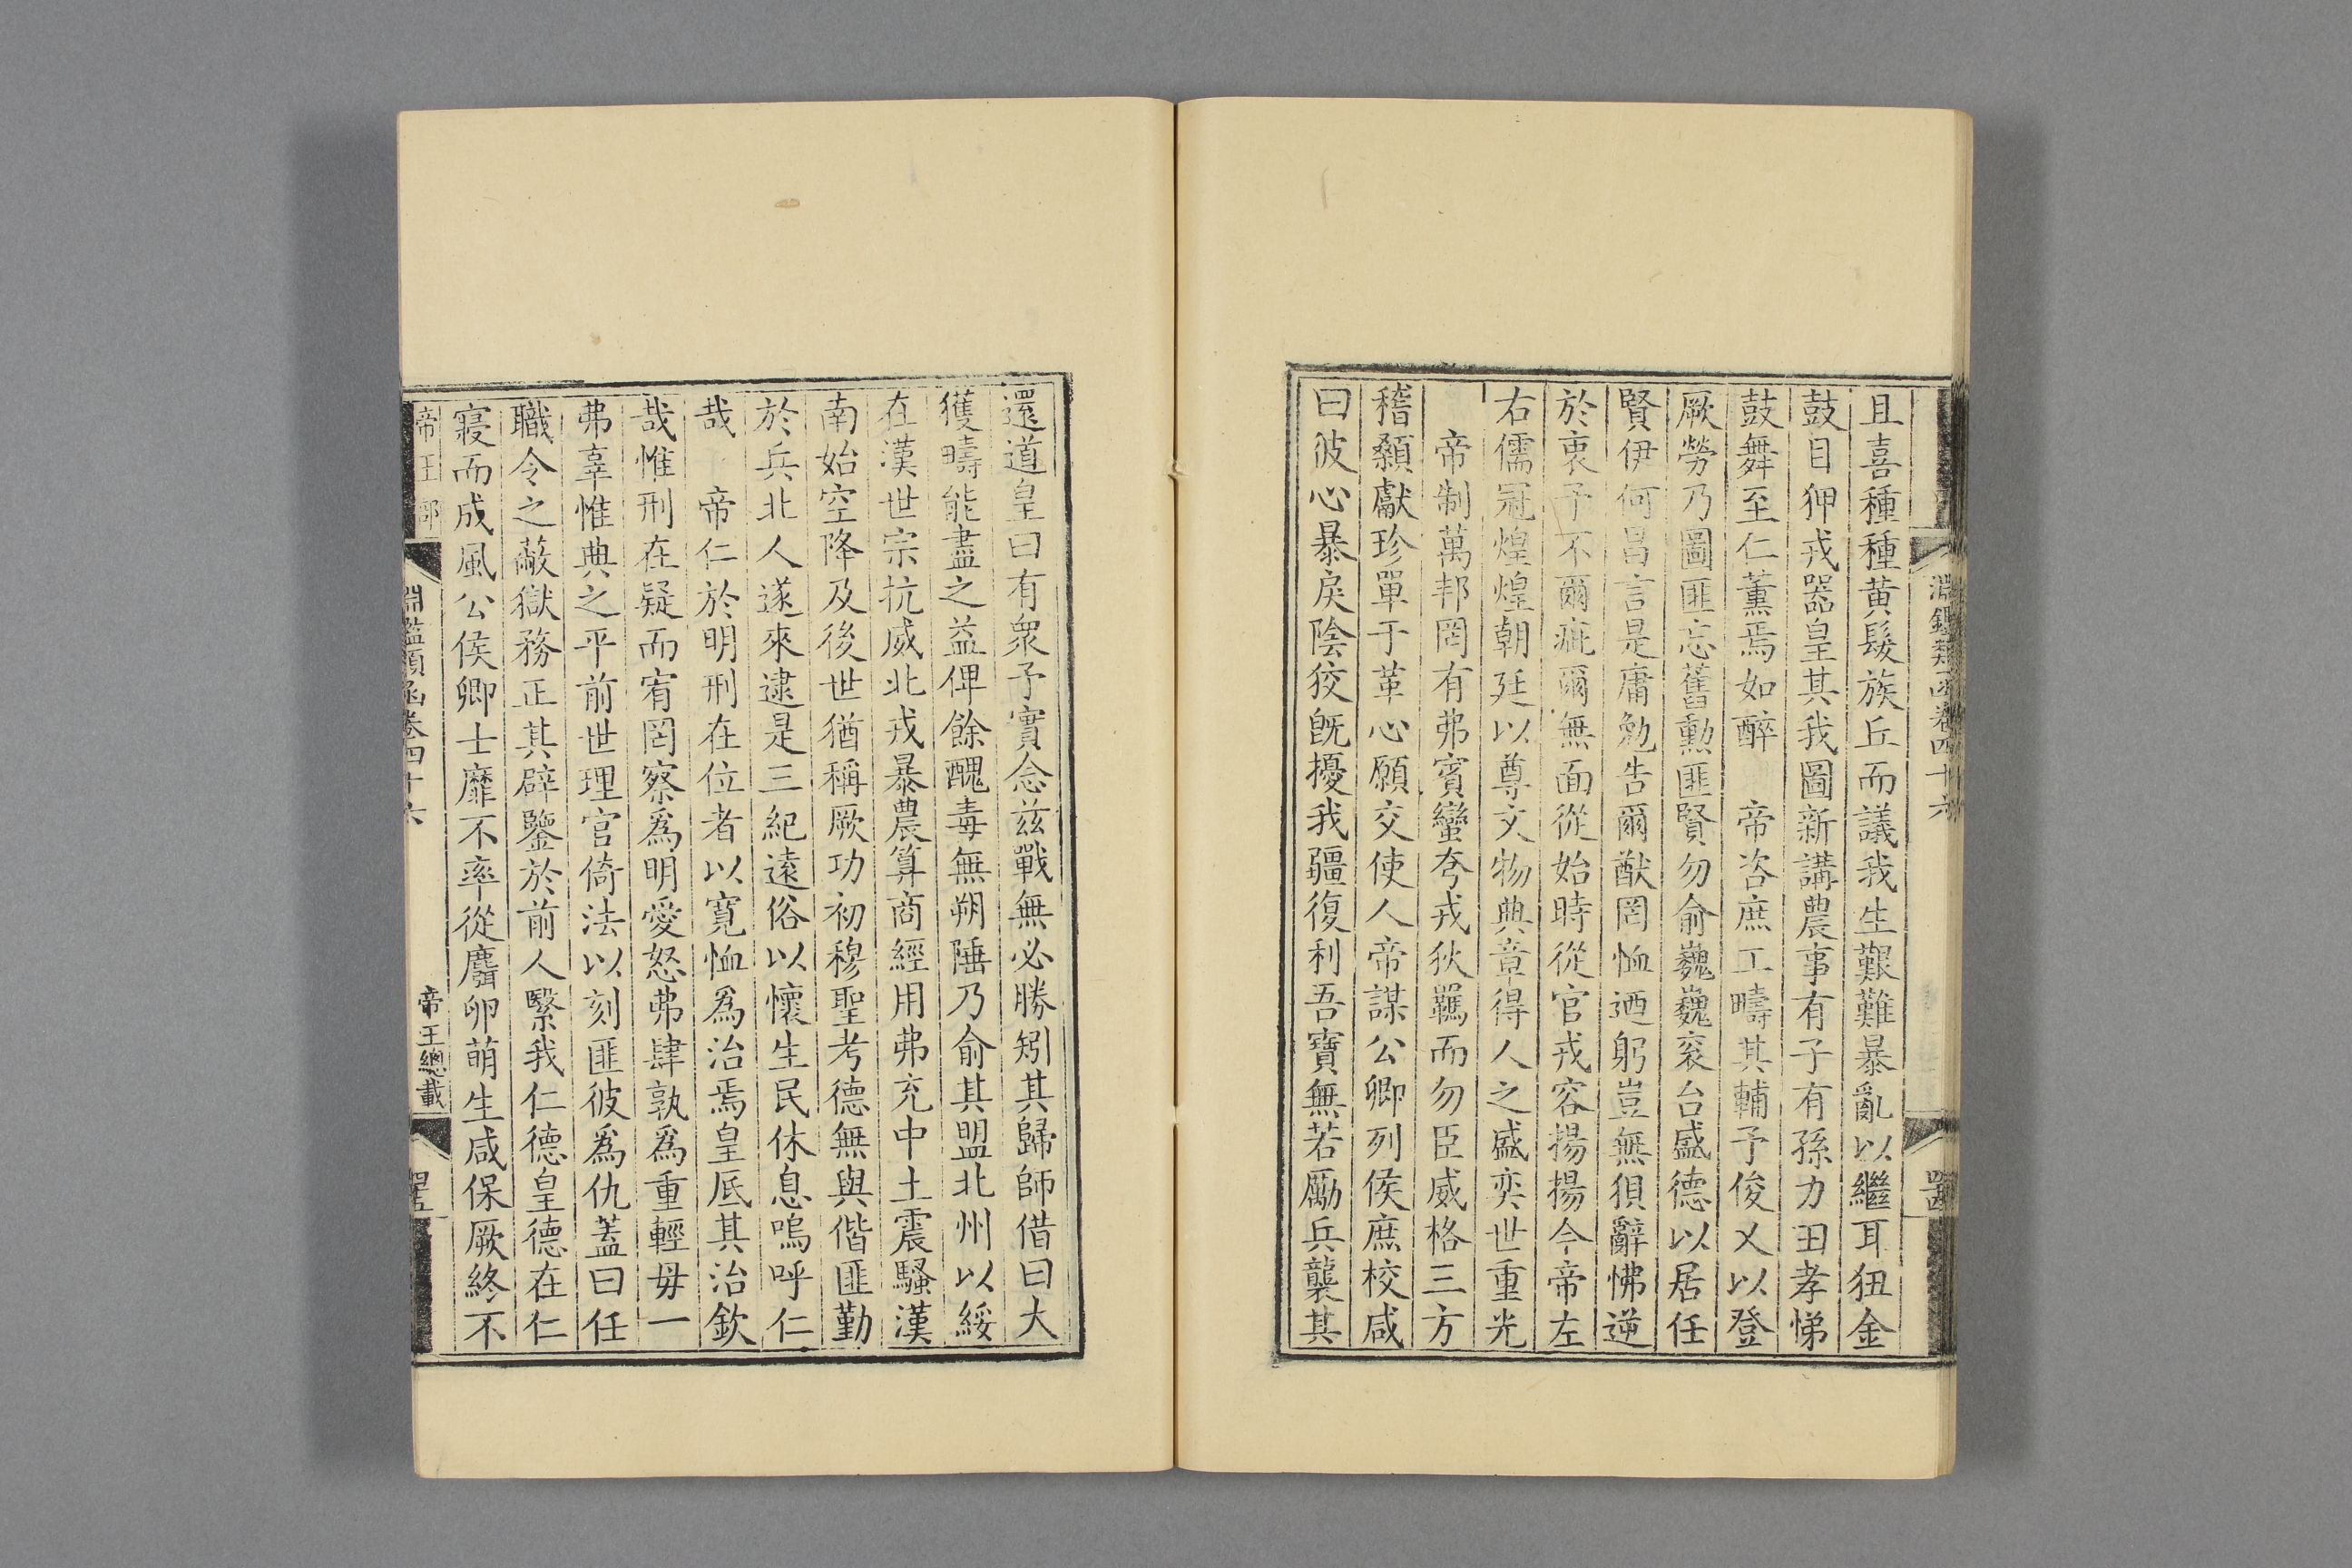 淵鑑類函卷四十六
且喜種種黄髮族丘而議我生艱難暴亂以繼耳狃金
鼓目狎戎器皇其我圖新講農事有子有孫力田孝悌
鼓舞至仁薰焉如醉　帝咨庶工疇其輔予俊乂以登
厥勞乃圖匪忘舊勳匪賢勿俞巍巍衮台盛德以居任
賢伊何昌言是庸勉告爾猷罔恤廼躬豈無狽辭怫逆
於衷予不爾疵爾無面從始時從官戎容揚揚今帝左
右儒冠煌煌朝廷以尊文物典章得人之盛奕世重光
帝制萬邦罔有弗賓蠻夸戎狄羈而勿臣威格三方
稽顙獻珍單于革心願交使人帝謀公卿列侯庶校咸
曰彼心暴戾陰狡旣擾我疆復利吾寶無若勵兵襲其
還道皇曰有衆予實念兹戰無必勝矧其歸師借曰大
獲疇能盡之益俾餘醜毒無朔陲乃俞其盟北州以綏
在漢世宗抗威北戎暴農算商經用弗充中土震騷漢
南始空降及後世猶稱厥功初穆聖考德無與偕匪勤
於兵北人遂來逮是三紀遠俗以懷生民休息嗚呼仁
哉　帝仁於明刑在位者以寬恤爲治焉皇厎其治欽
哉惟刑在疑而宥罔察爲明愛怒弗肆孰爲重輕毋一
弗辜惟典之平前世理官倚法以刻匪彼爲仇蓋曰任
職令之蔽獄務正其辟鑒於前人緊我仁德皇德在仁
寢而成風公侯卿士靡不率從麛卵萌生咸保厥終不
帝王部
淵鑑類函卷四十六
帝王總載